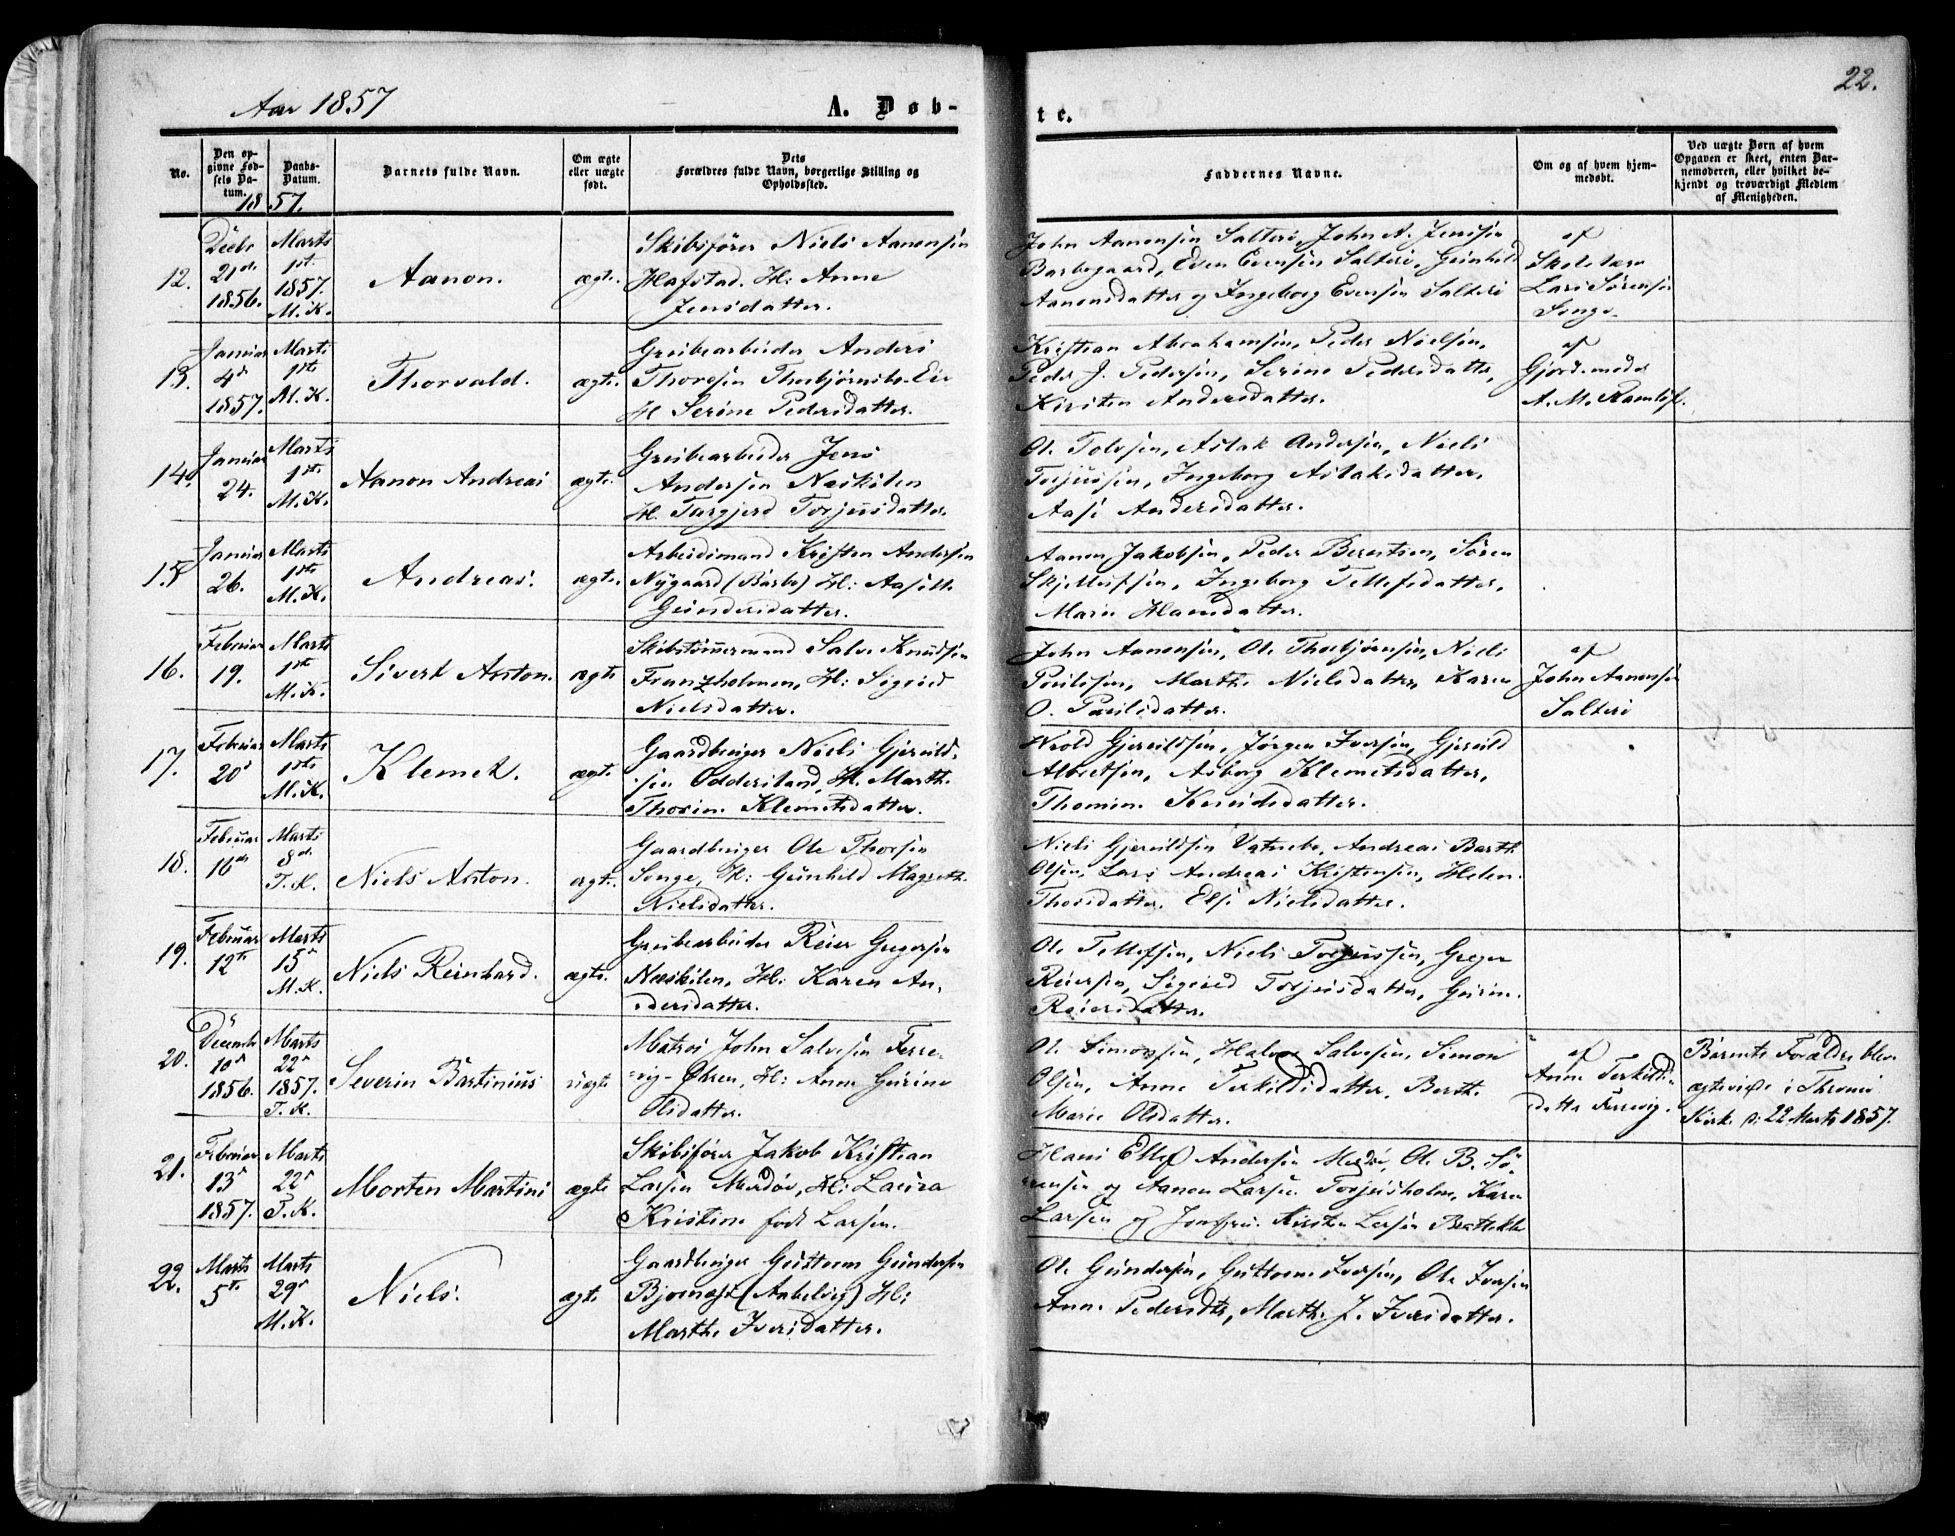 22.
Aar 1857
A. Døb-
te.
No.
Den op-
givne Fød-
sels Da-
tum.
Daabs-
Datum.
Barnets fulde Navn.
Om ægte
eller uægte
født.
Dets
Forældres fulde Navn, borgerlige Stilling og
Opholdssted.
Faddernes Navne.
Om og af hvem hjem-
medøbt.
Ved uægte Børn af hvem
Opgaven er skeet, enten Bar-
nemoderen, eller hvilket be-
kjendt og troværdigt Medlem
af Menigheden.
1857.
12.
Decbr
21de
1856.
Marts
1ste
1857.
M. K.
Aanon.
ægte.
Skibsfører Niels Aanonsen
Hafstad. H: Anne
Jensdatter.
John Aanonsen Salterø, John A. Jensen
Barbogaard, Even Evensen Salterø, Gunhild
Aanonsdatter og Ingeborg Evensen Salterø
af
Skolelærer
Lars Sørensen
Songe.
13.
Januar
4de
1857.
Marts
1ste
M. K.
Thorvald.
ægte.
Grubearbeider Anders
Thorsen Thorbjørnsbo. Eie
H Serine Pedersdatter.
Kristian Abrahamsen, Peder Nielsen,
Peder J. Pedersen, Serine Pedersdatter,
Kirsten Andersdatter.
af
Gjordemoder
A. M. Ramløf.
14.
Januar
24.
Marts
1ste
M. K.
Aanon Andreas
ægte.
Grubearbeider Jens
Andersen Næskilen
H. Torgjerd Torjusdatter.
Ole Tolvsen, Aslak Andersen, Niels
Torjussen, Ingeborg Aslaksdatter,
Aase Andersdatter.
15.
Januar
26.
Marts
1ste
M. K.
Andreas.
ægte.
Arbeidsmand Kristen Andersen
Nygaard (Barbo) H: Aaseth
Gundersdatter.
Aanon Jakobsen, Peder Berentsen, Søren
Skjellufsen, Ingeborg Tellefsdatter,
Maren Hansdatter.
16.
Februar
19.
Marts
1ste
M. K.
Sivert Anton.
ægte
Skibstømmermand Salve Knudsen
Franzholmen, H: Sigrid
Nielsdatter.
John Aanonsen, Ole Thorbjørnsen, Niels
Poulssen, Marthe Nielsdatter, Karen
O. Poulsdatter.
af
John Aanonsen
Salterø
17.
Februar
20de
Marts
1ste
M. K.
Klemet.
ægte.
Gaardbruger Niels Gjeruld-
sen Oddersland, H. Marthe
Thorine Klemetsdatter.
Wrold Gjeruldsen, Jørgen Iversen, Gjeruld
Albretsen, Asborg Klemetsdatter,
Thomine Knudsdatter.
18.
Februar
16de
Marts
8de
T. K.
Niels Anton.
ægte.
Gaardbruger Ole Thorsen
Songe, H: Gunhild Magrethe
Nielsdatter.
Niels Gjeruldsen Vatnebo, Andreas Barth
Olsen, Lars Andreas Kristensen, Helene
Thorsdatter. Else Nielsdatter.
19.
Februar
12te
Marts
15de
M. K.
Niels Reinhard.
ægte.
Grubearbeider Reier Gregersen
Næskilen, H: Karen An-
dersdatter.
Ole Tellefsen, Niels Torjussen, Greger
Reiersen, Sigrid Torjusdatter, Gurine
Reiersdatter.
20.
December
10de
1856.
Marts
22de
1857.
T. K.
Severin Bartinius
uægte
Matros John Salvesen Fære-
vig-Ökren, H: Anne Gurine
Olsdatter.
Ole Simonsen, Halvor Salvesen, Simon
Olsen, Anne Terkildsdatter, Berthe
Marie Olsdatter.
af
Anne Terkilds-
datter Færevig.
Barnets Forældre blev
ægteviede i Thromø
Kirke d: 22 Marts 1857.
21.
Februar
13de
1857.
Marts
22de
T. K.
Morten Martins
ægte
Skibsfører Jakob Kristian
Larsen Merdøe, H: Laura
Kristine født Larsen.
Hans Ellef Andersen Merdø, Ole B. Sø-
rensen og Aanon Larsen Torjusholm, Karen
Larsen og Jomfru Kirsten Larsen
22.
Marts
5te
Marts
29de
M. K.
Niels.
ægte
Gaardbruger Guttorm Gundersen
Bjørnast (Aakelvig) H:
Marthe Iversdatter.
Ole Gundersen, Guttorm Iversen, Ole Iversen
Anne Pedersdtr, Marthe J. Iversdatter.